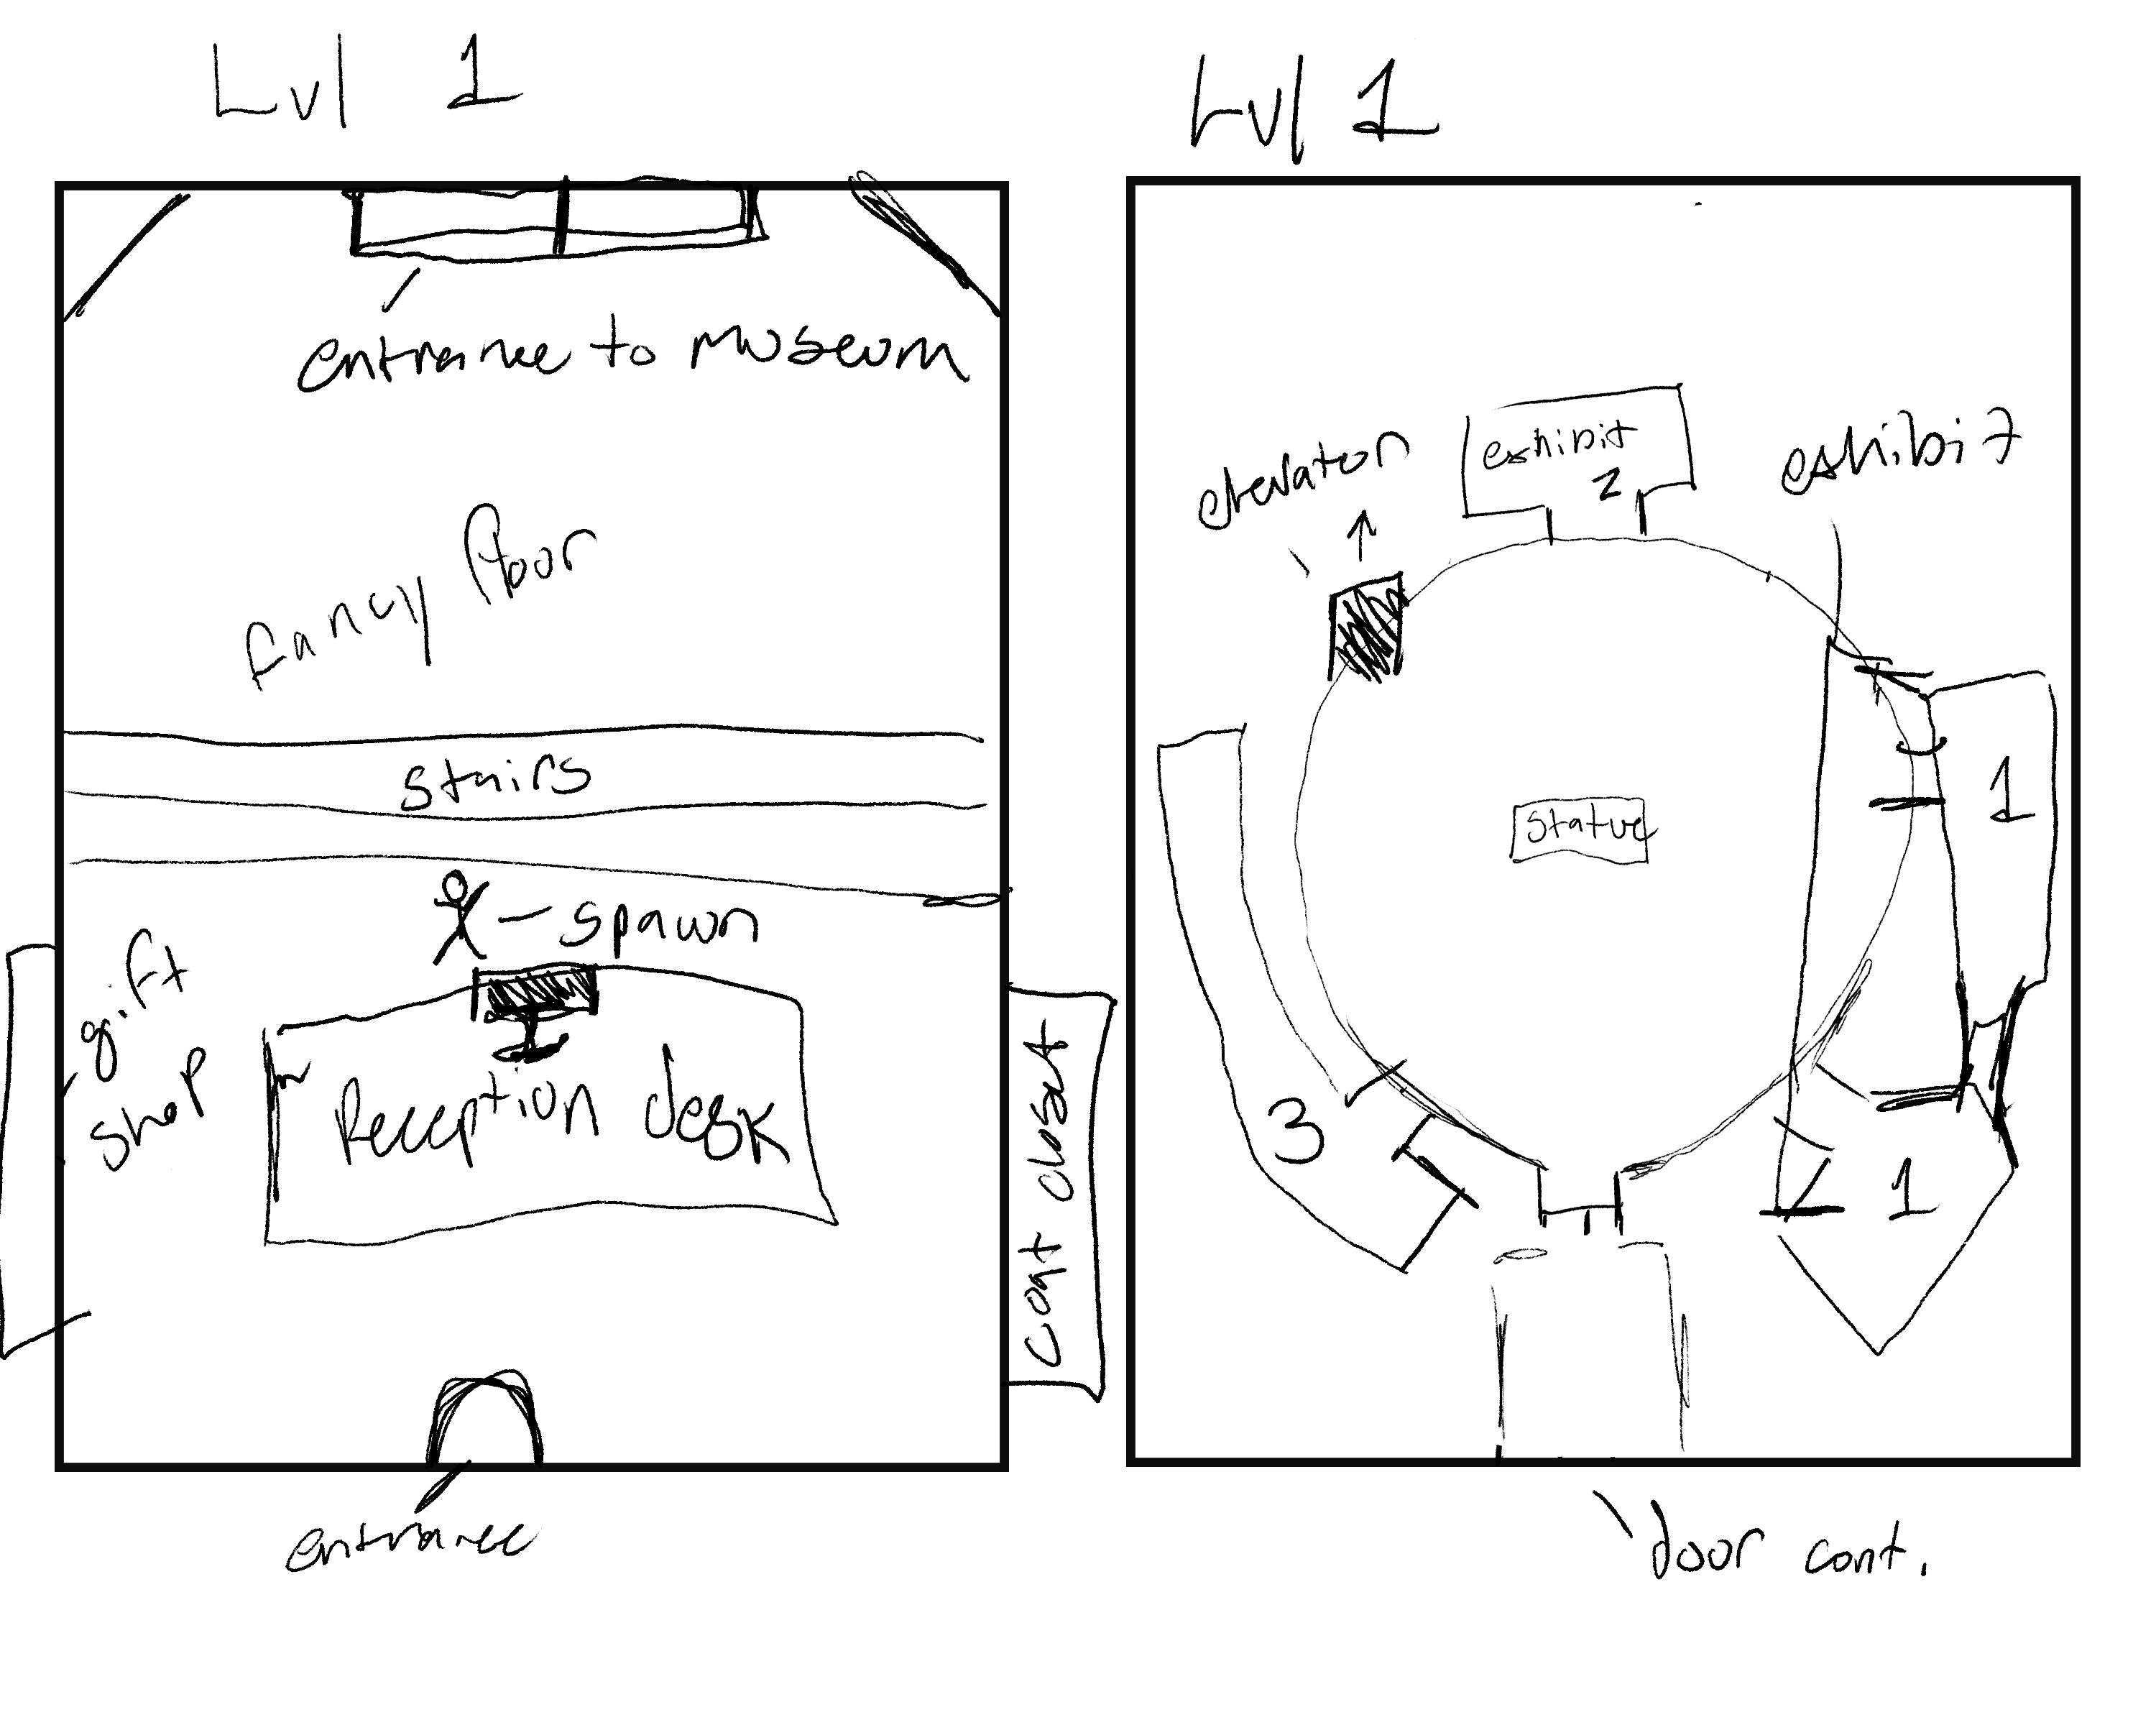 Lvl 1
entrance to museum
fancy floor
stairs
spawn
gift
shop
Reception desk
coat closet
entrance
Lvl 1
elevator
exhibit
2
exhibit
statue
1
3
1
door cont.